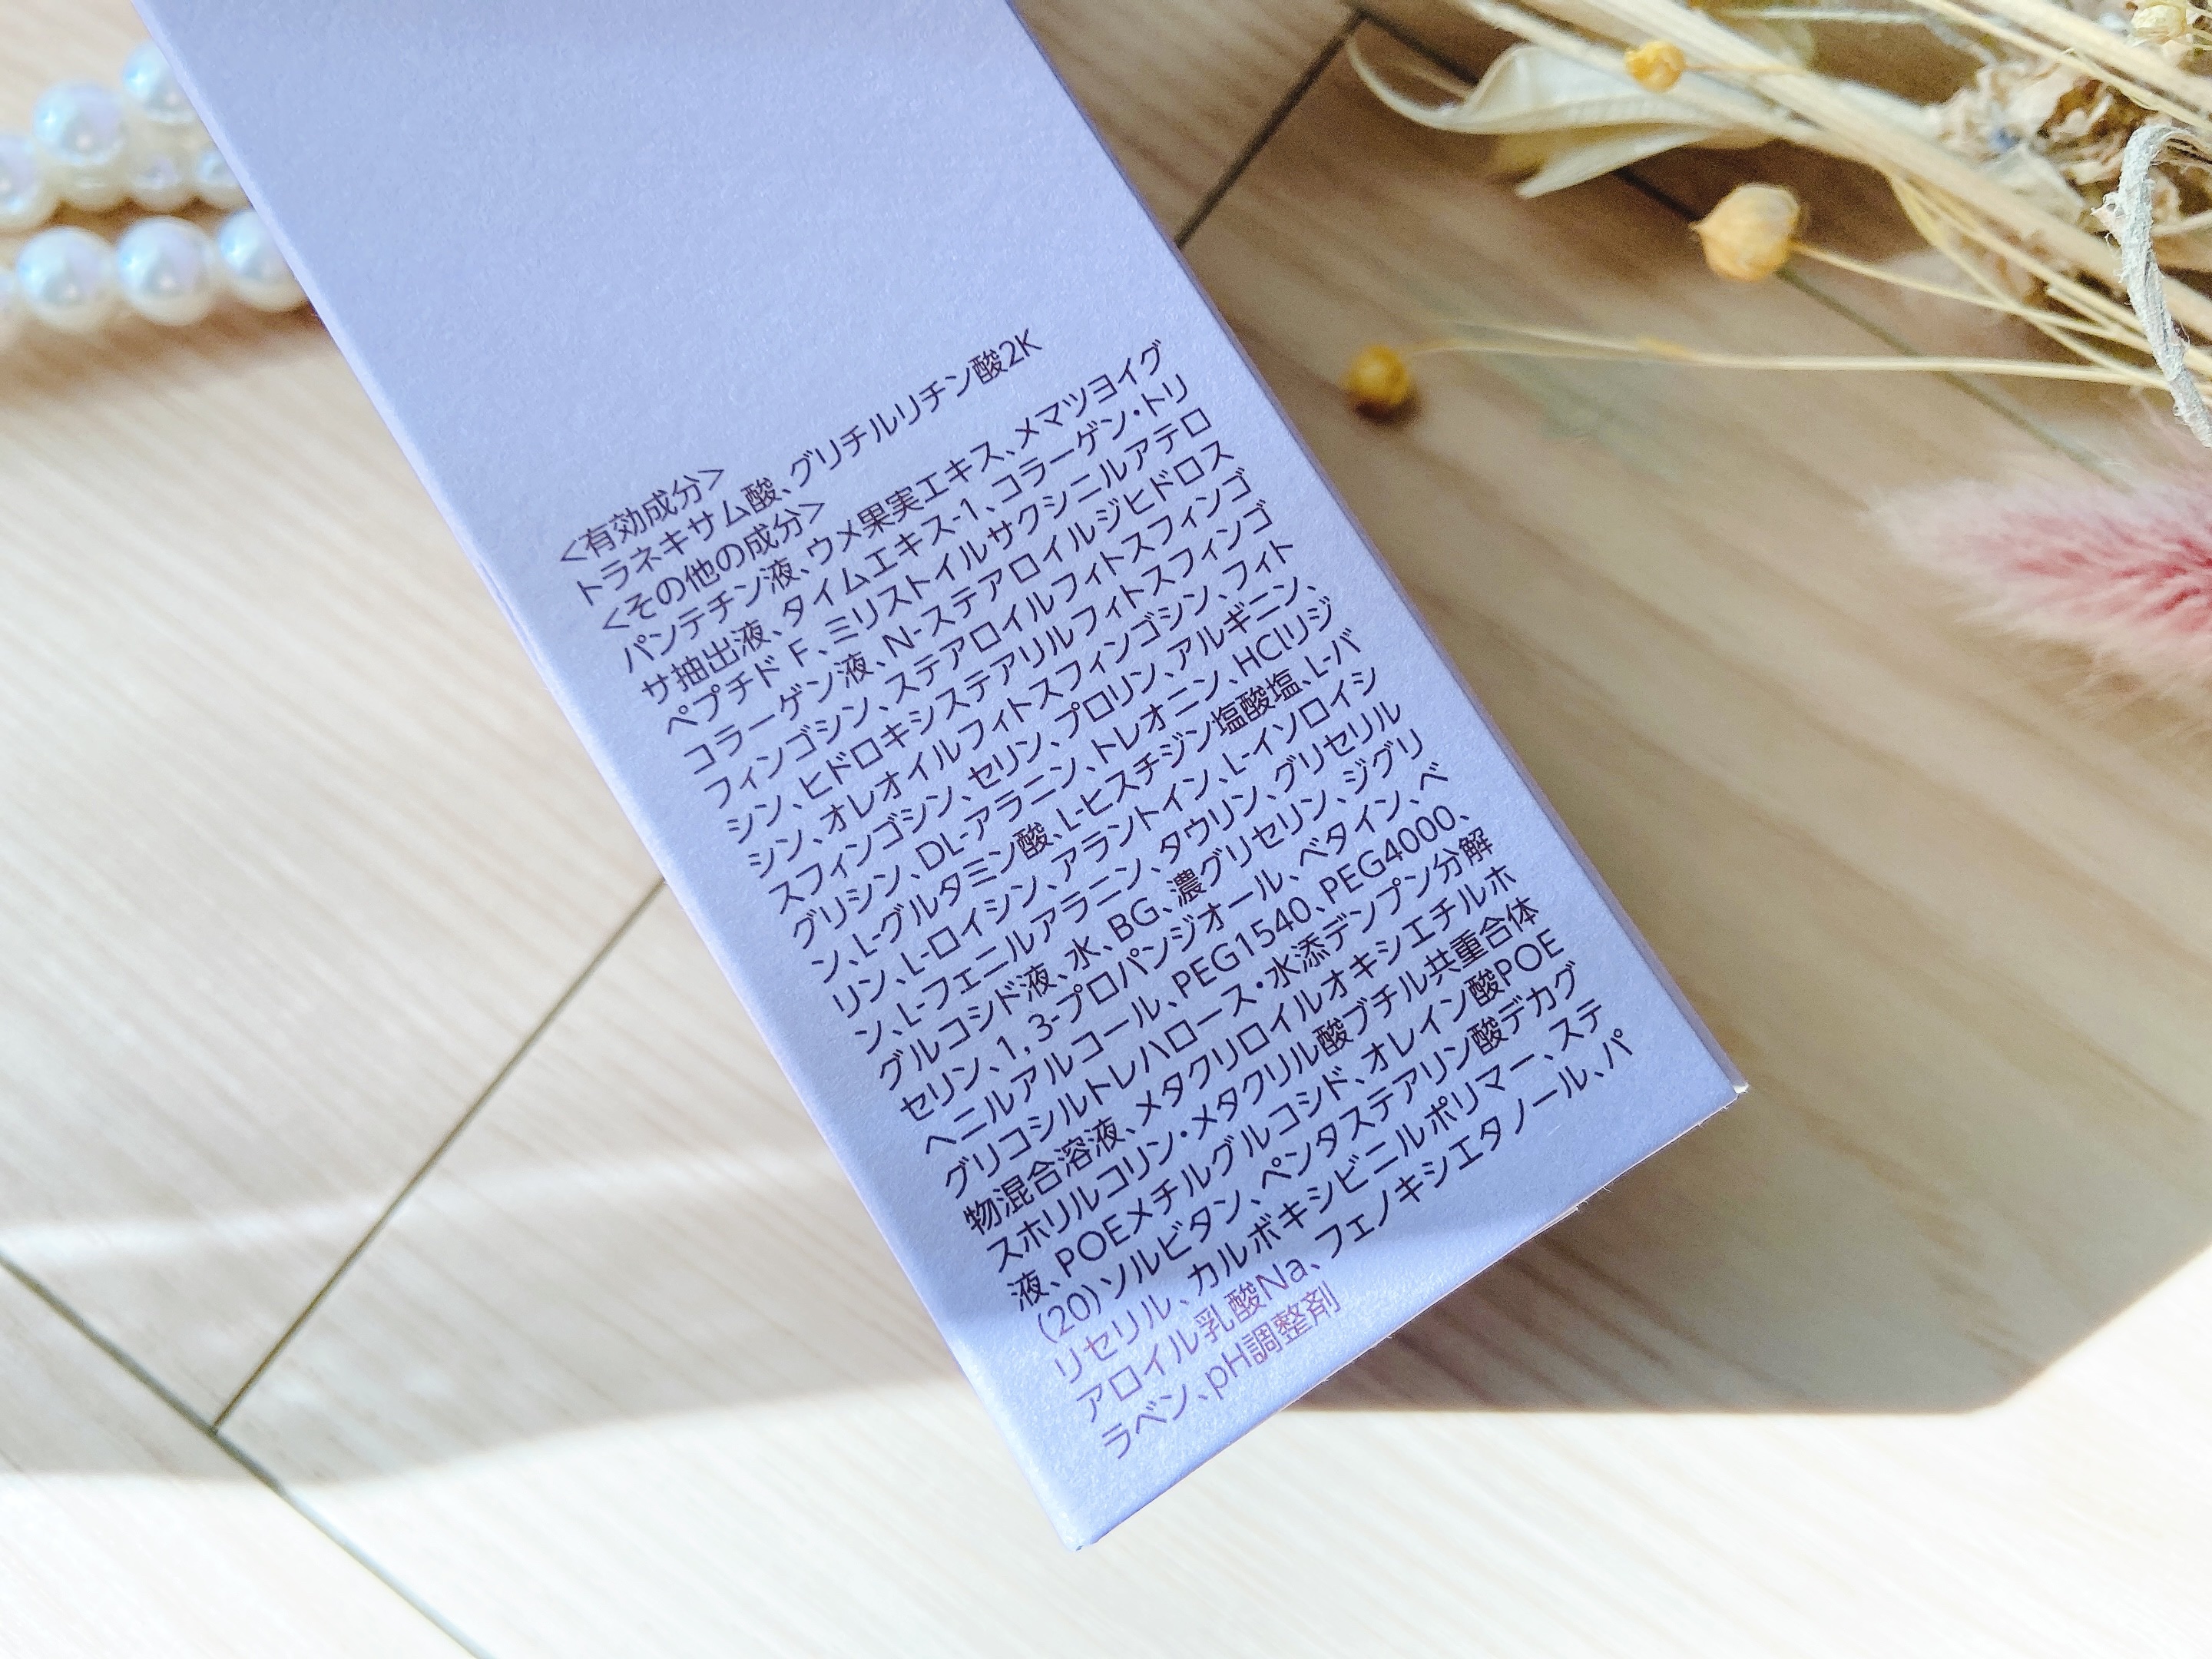 <有効成分>
トラネキサム酸、グリチルリチン酸2K
<その他の成分>
パンテチン液、ウメ果実エキス、メマツヨイグ
サ抽出液、タイムエキス-1、コラーゲン・トリ
ペプチド F、ミリストイルサクシニルアテロ
コラーゲン液、N-ステアロイルジヒドロス
フィンゴシン、ステアロイルフィトスフィンゴ
シン、ヒドロキシステアリルフィトスフィンゴ
シン、オレオイルフィトスフィンゴシン、フィト
スフィンゴシン、セリン、プロリン、アルギニン、
グリシン、DL-アラニン、トレオニン、HClリジ
ン、L-グルタミン酸、L-ヒスチジン塩酸塩、L-バ
リン、L-ロイシン、アラントイン、L-イソロイシ
ン、L-フェニルアラニン、タウリン、グリセリル
グルコシド液、水、BG、濃グリセリン、ジグリ
セリン、1,3-プロパンジオール、ベタイン、ベ
ヘニルアルコール、PEG1540、PEG4000、
グリコシルトレハロース・水添デンプン分解
物混合溶液、メタクリロイルオキシエチルホ
スホリルコリン・メタクリル酸ブチル共重合体
液、POEメチルグルコシド、オレイン酸POE
(20)ソルビタン、ペンタステアリン酸デカグ
リセリル、カルボキシビニルポリマー、ステ
アロイル乳酸Na、フェノキシエタノール、パ
ラベン、pH調整剤